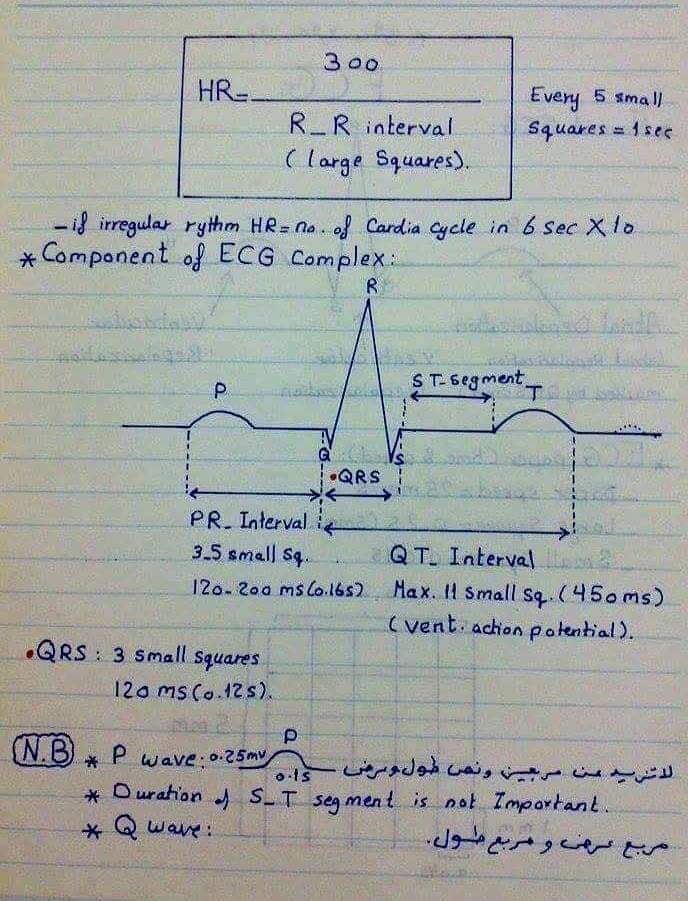 300
HR= R_R interval
(large Squares).
Every 5 small
Squares = 1sec
_ if irregular rythm HR= no. of Cardia cycle in 6 sec X 10
* Component of ECG Complex:
R
P
ST-Segment
T
Q
S
•QRS
PR_ Interval
3_5 small sq.
120-200 ms (0.16s)
QT_ Interval
Max. 11 small sq. (450ms)
(vent. action potential).
•QRS: 3 small squares
120 ms (0.12s).
N.B * P wave: 0.25mv P 0.1s لا تزيد عن مربعين ونص طول وعرض
* Duration of S_T segment is not Important.
* Q wave: مربع عرض و مربع طول.